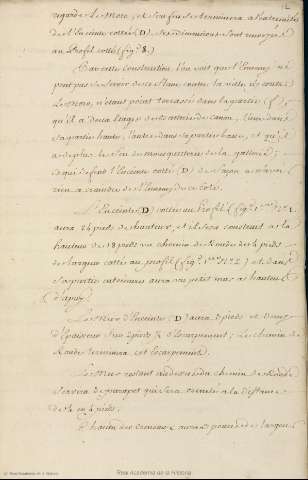 regarde Le Moro, et son feu se terminera a l'extremité
de l'Enceinte cottée (D) ses dimmensions sont renvoyées
au Profil cotté (fig.e 8.)
Par cette Construction, l'on voit que l'Ennemy ne
peut pas se servir de ce
Le Moro, n'étant point terrassé dans la partie
qu'il a deux Etages de batterie de canon, l'une dans
sa partie haute, l'autre dans sa partie basse, et qu'il
a de plus le feu de mousqueterie de la gallerie;
ce qui defend l'Enceinte cottée (D) de façon a n'avoir
rien a craindre de l'Ennemy de ce côté.
L'Enceinte (D) cottée au Profil (fig.e 1.re et 2
aura 24 pieds de hauteur, et el sera construit a la
hauteur de 18 pieds un chemin de Ronde de 4 pieds
de largeur cotté au profil (fig.e 1.re et 2) et dans
sa partie exterieure aura un petit mur a hauteur
d'apuy.
Le Mur d'Enceinte (D) aura pieds et demy
d'Epaisseur sur 2 pieds ½ d'Escarpement; Le chemin de
Ronde terminera cet Escarpement.
Le Mur restant au dessus du chemin de Ronde
servira de parapet qui sera crenelé a la distance
de en 4 pieds;
Chacun des creneaux aura pouces de largeur
Real Academia de la Historia